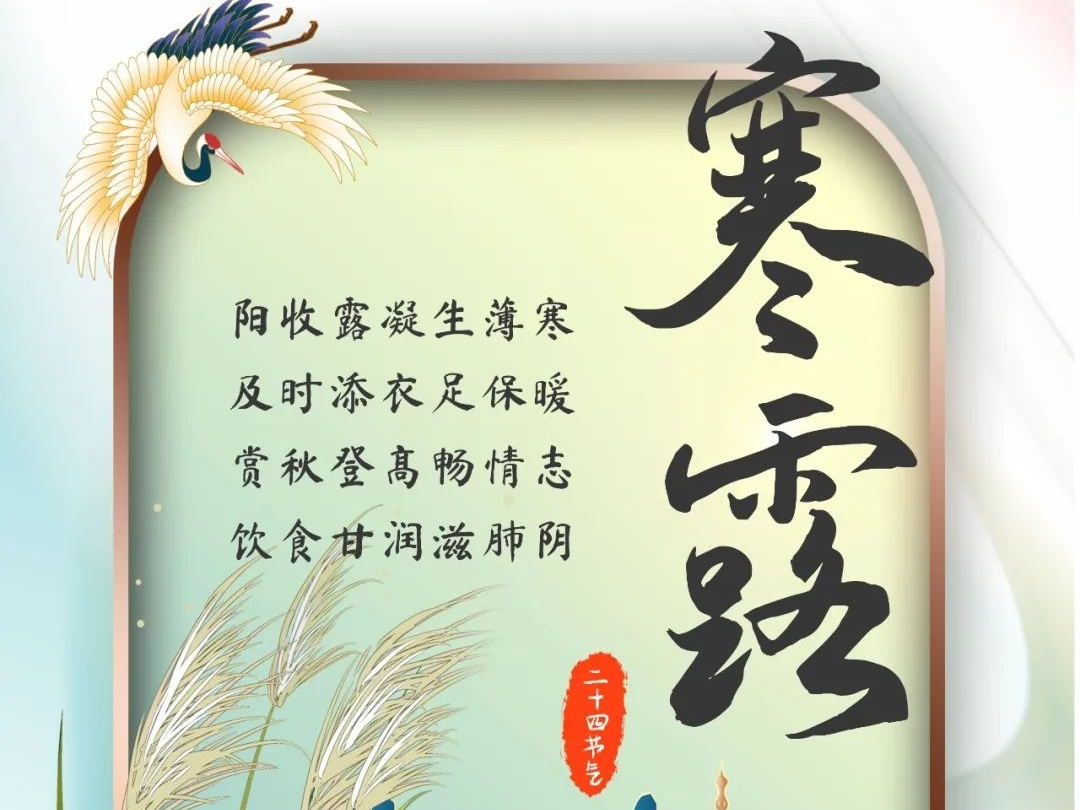 寒露
阳收露凝生薄寒
及时添衣足保暖
赏秋登高畅情志
饮食甘润滋肺阴
二十四节气